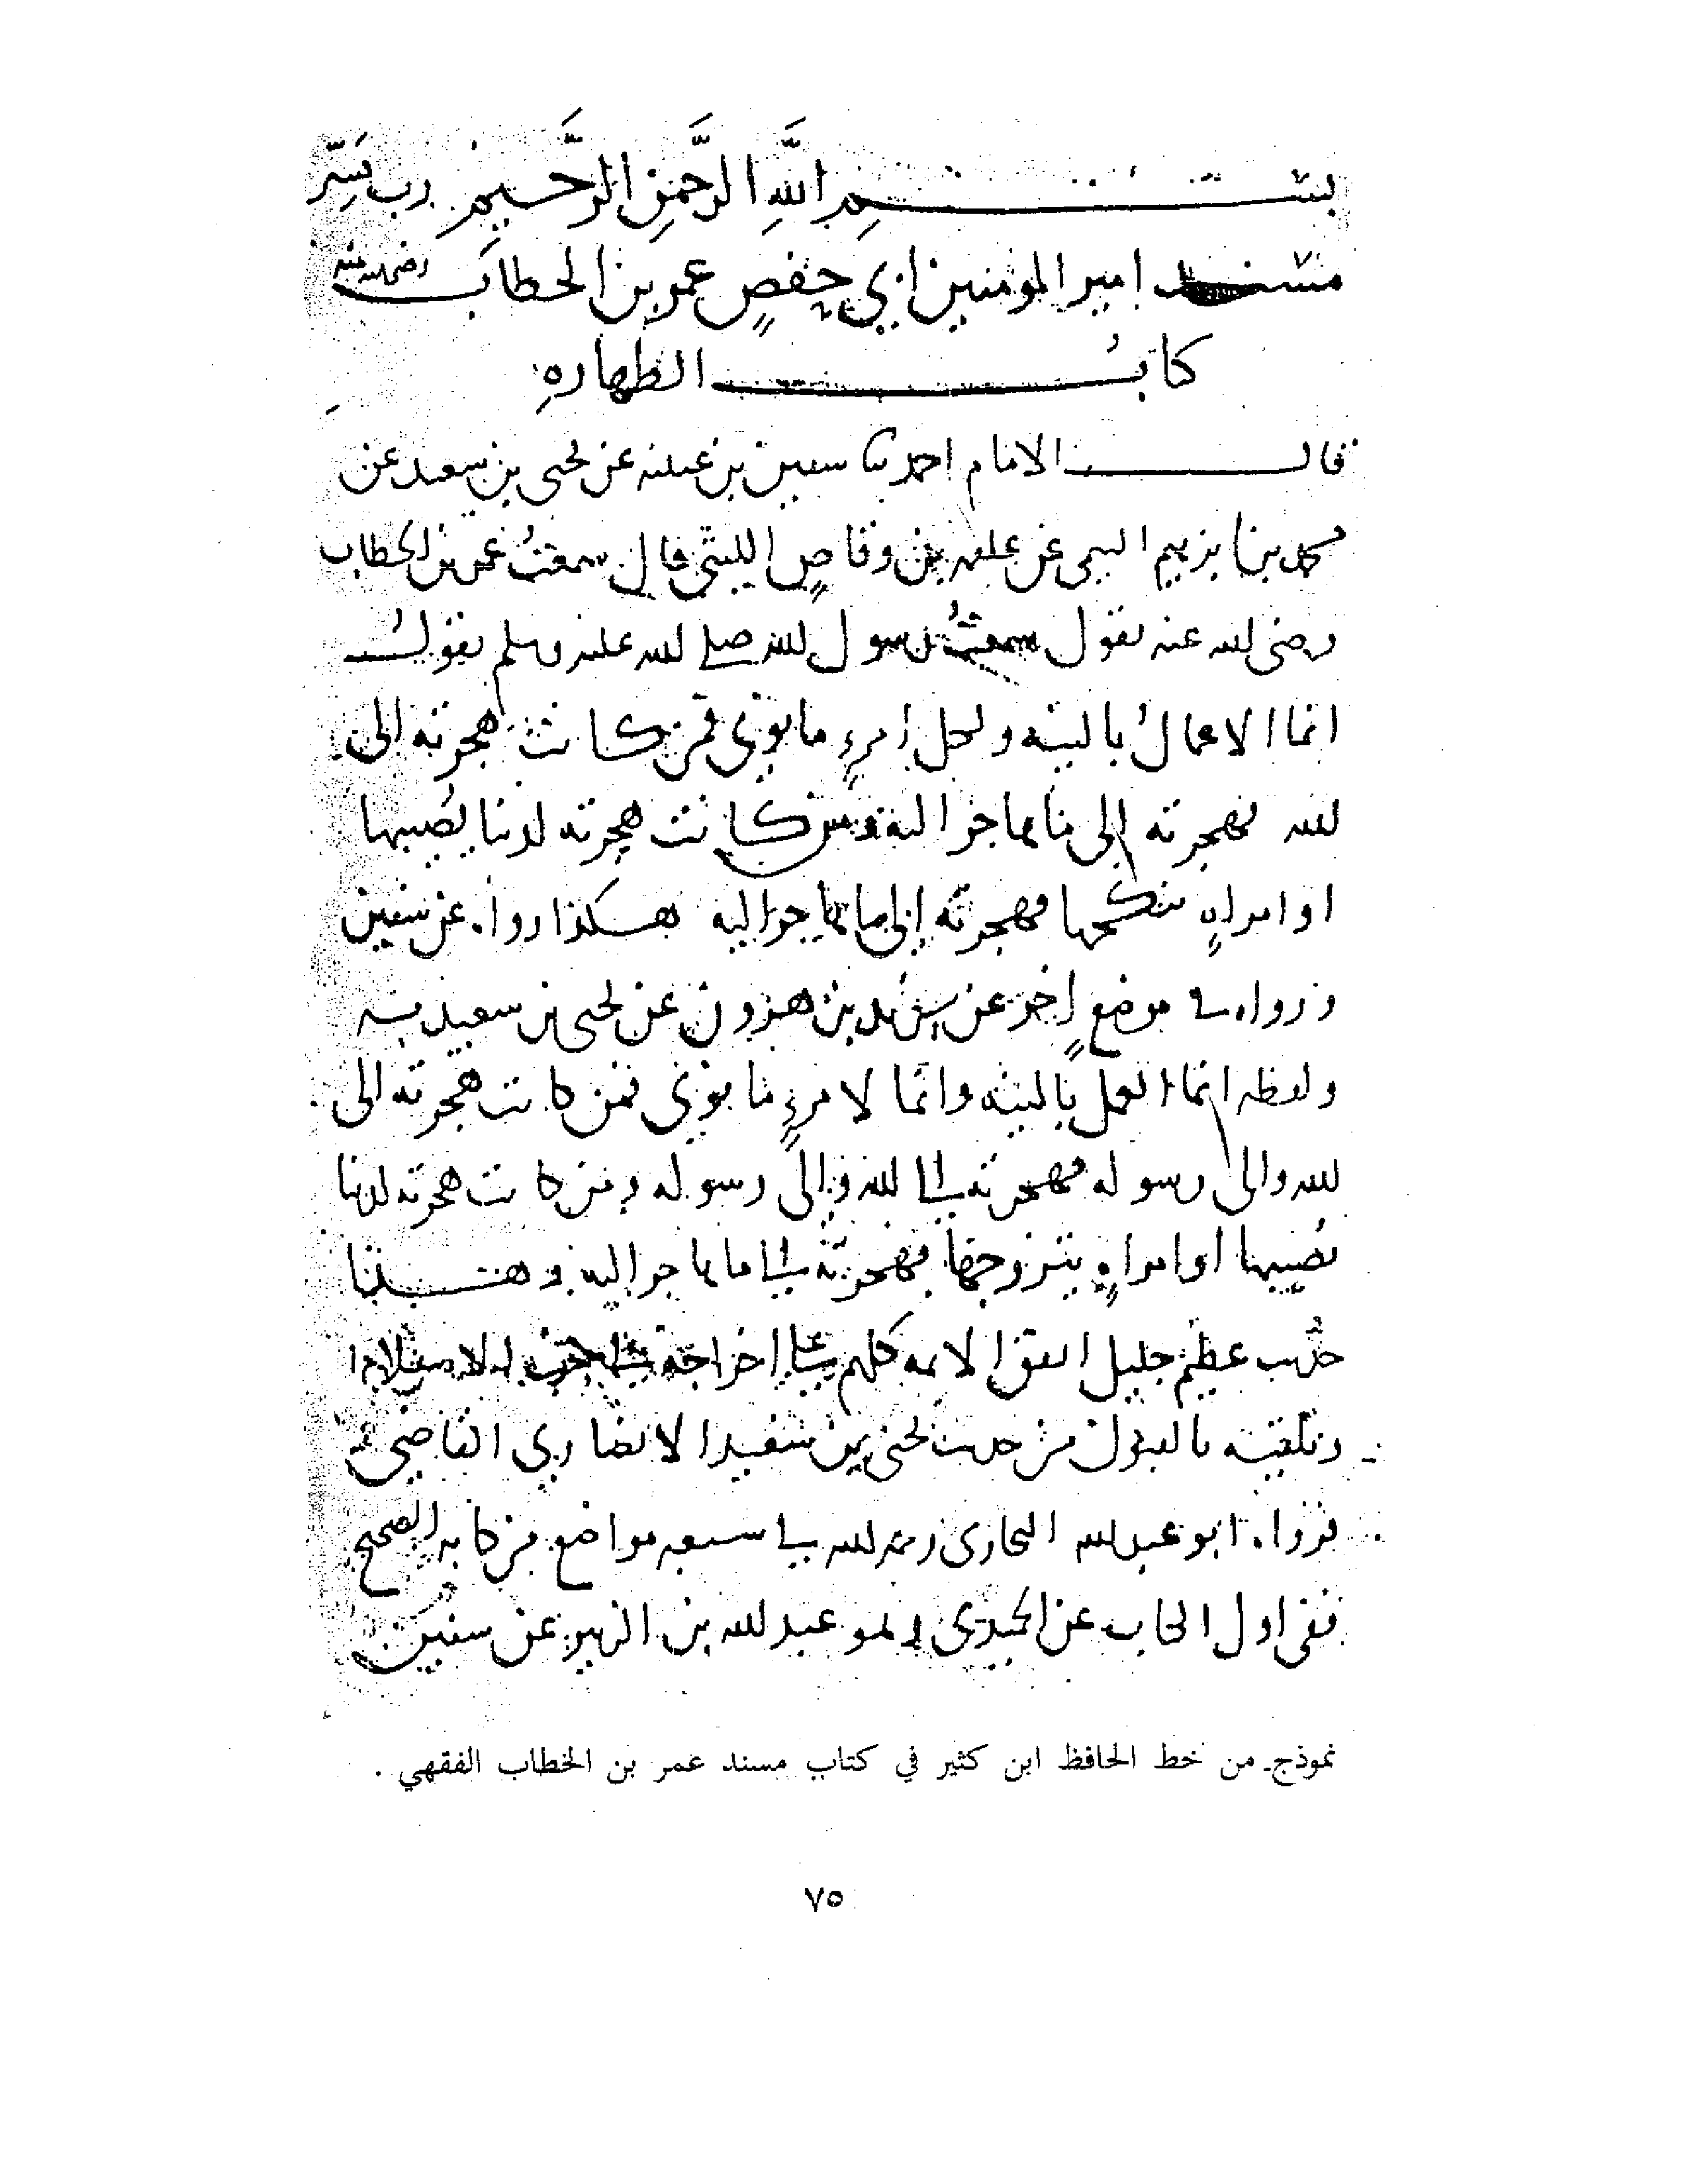 بسم اللَّهِ الرَّحمنِ الرَّحيم رب يَسِّر
مسند امير المومنين ابي حفصٍ عمر بن الخطاب رضي الله عنه
كتابُ الطهاره
قال الامام احمد ثنا سفين بن عيينه عن يحيى بن سعيد عن
محمد بن ابرهيم التيمي عن علقمه بن وقاصٍ الليثي قال سمعتُ عمر بن الخطاب
رضى الله عنه يقول سمعتُ رسول الله صلى الله عليه وسلم يقولُ
انما الاعمالُ بالنيه ولكل امرءٍ ما نوى فمن كانت هجرته الى
الله فهجرته الى ما هاجر اليه ومن كانت هجرته لدنيا يُصيبها
او امراهٍ ينكحها فهجرته الى ما هاجر اليه هكذا رواه عن سفين
ورواه في موضعٍ اخر عن يزيد بن هرون عن يحيى بن سعيد به
ولفظه انما العمل بالنيه وانما لامرءٍ ما نوى فمن كانت هجرته الى
الله والى رسوله فهجرته الى الله والى رسوله ومن كانت هجرته لدنيا
يُصيبها او امراهٍ يتزوجها فهجرته الى ما هاجر اليه وهذا
حديث عظيم جليل اتفق الايمه كلهم على اخراجه في الاسلام
وتلقيه بالقبول من حديث يحيى بن سعيد الانصاري القاضي
فرواه ابو عبد الله البخارى رحمه الله في سبعه مواضع من كتابه الصحيح
ففي اول الكتاب عن الحميدى عبد الله بن الزبير عن سفين
نموذج من خط الحافظ ابن كثير في كتاب مسند عمر بن الخطاب الفقهي .
٧٥